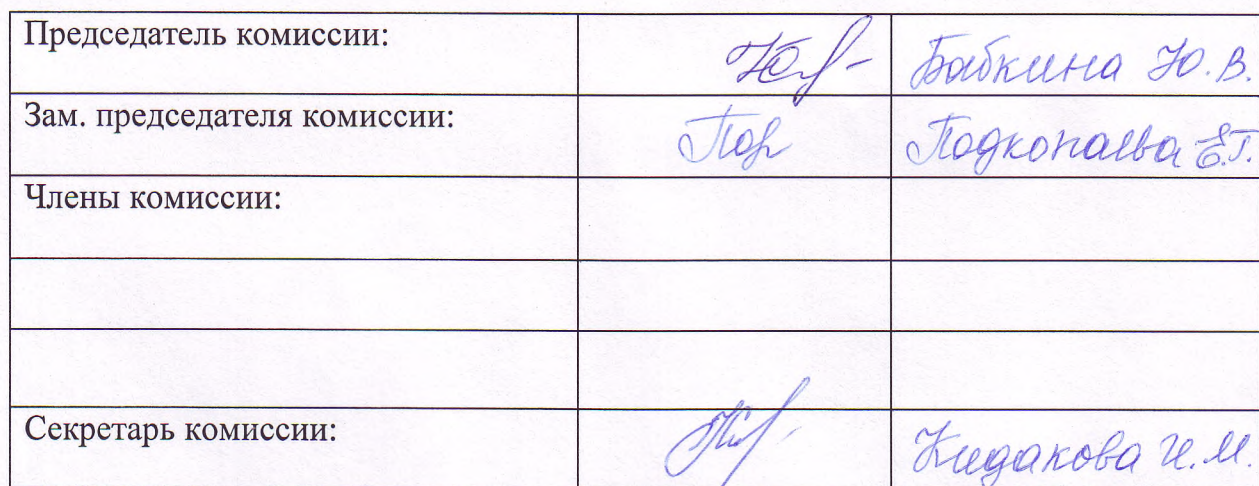 Председатель комиссии: Бабкина Ю. В.
Зам. председателя комиссии: Подкопаева Е.Г.
Члены комиссии:
Секретарь комиссии: И. М.